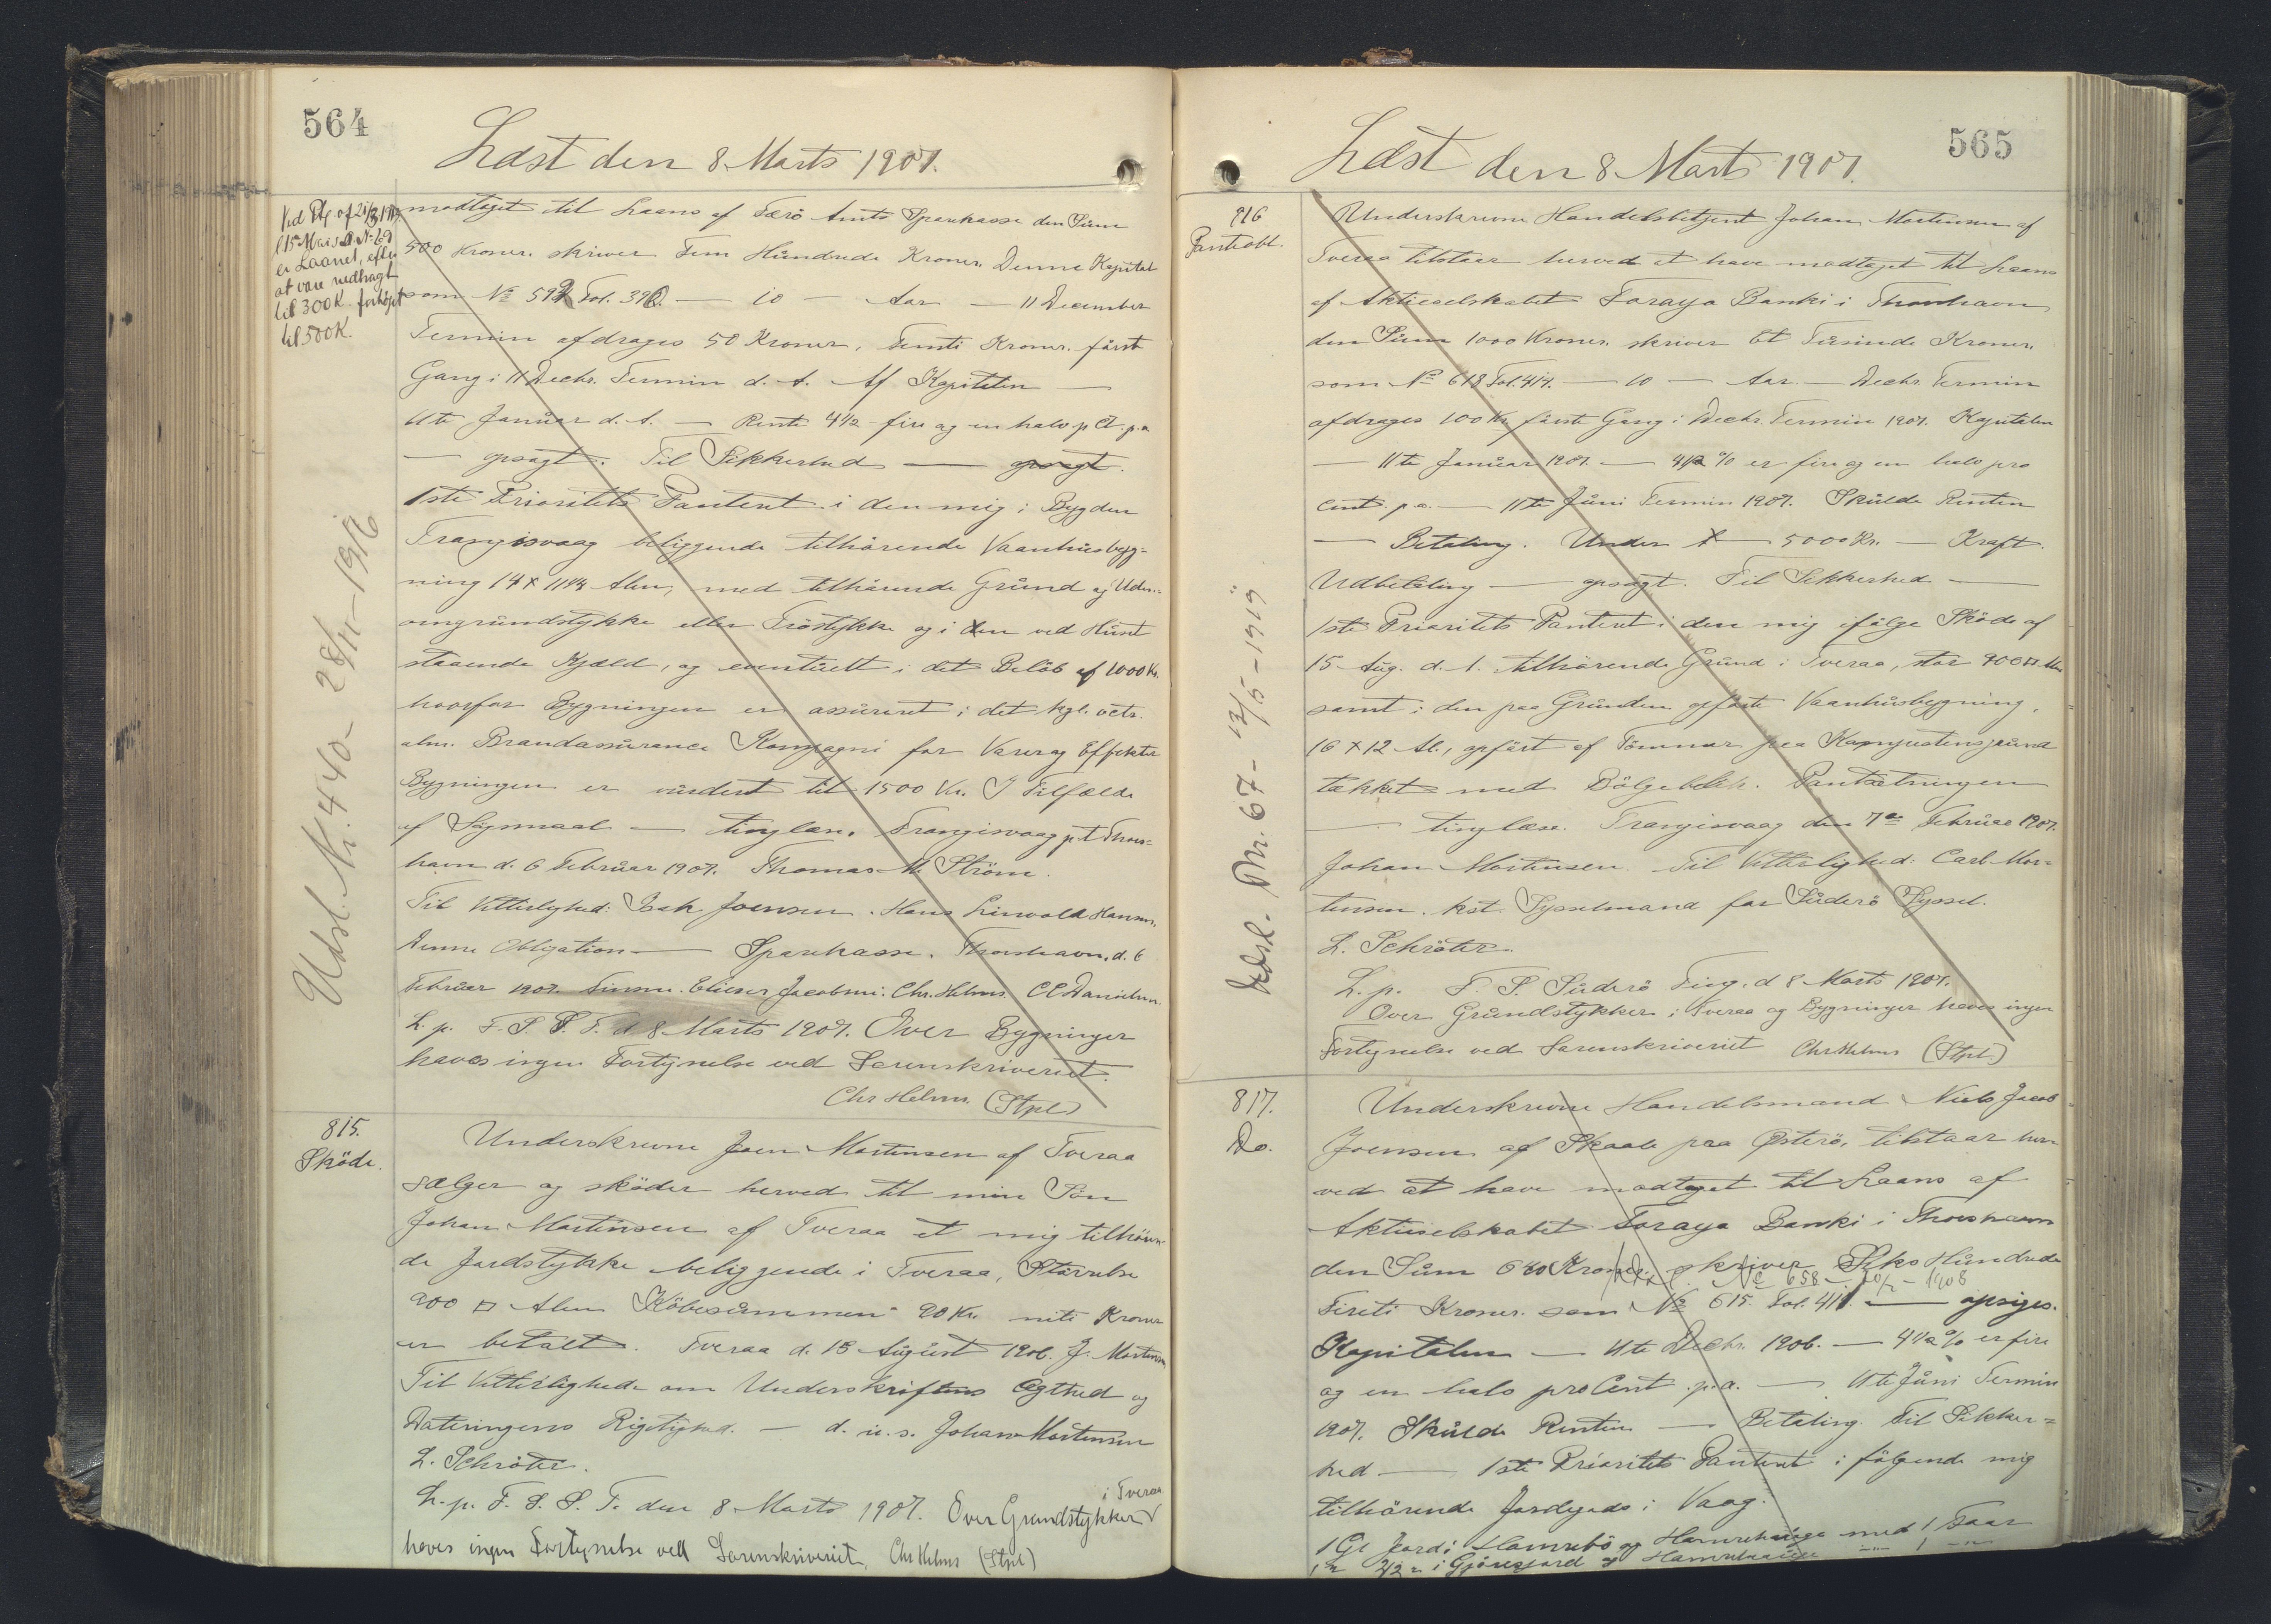 564
Læst den 8 Marts 1907.
Ved Ptg. af 21/3 1917
l. 15 Mai s.A. N. 69
er Laanet, efter
at være nedbragt
til 300 K. forhöjet
til 500 K.
Udsl. Nr. 440 - 28/11 - 1916
modtaget til Laans af Færö Amts Sparkasse den Sum
500 Kroner, skriver Fem Hundrede Kroner. Denne Kapital
som № 592 Fol. 392. — 10 — Aar — 11 December
Termin afdrages 50 Kroner, Femti Kroner, först
Gang i 11 Decbr. Termin d. A. Af Kapitalen —
11te Januar d. A. — Rente 4 1/2 fire og en halv p Ct. p.a
— opsagt. Til Sikkerhed — opsagt.
1ste Prioritets Panteret i den mig i Bygden
Trangisvaag beliggende tilhörende Vaanhusbyg-
ning 14 x 11 1/4 Alen, med tilhörende Grund og Uden-
omgrundstykke eller Tröstykke og i den ved Huset
staaende Kjæld, og eventuelt i det Belöb af 1000 Kr.
hvorfor Bygningen er assureret i det kgl. octr.
alm. Brandassurance Kompagni for Varer og Effekter
Bygningen er vurderet til 1500 Kr. I Tilfælde
af Sögsmaal — tinglæse. Trangisvaag p.t. Thors-
havn d. 6 Februar 1907. Thomas M. Ström.
Til Vitterlighed: Isak Joensen. Hans Linvald Hansen.
Denne Obligation — Sparekasse. Thorshavn, d. 6
Februar 1907. Simon. Elieser Jacobsen. Chr. Helms. CC Danielsen.
L. p. F. S. S. T. d. 8 Marts 1907. Over Bygninger
haves ingen Fortynelse ved Sorenskriveriet.
Chr Helms. (Stpl)
815.
Sköde.
Underskrevne Joen Mortensen af Tveraa
sælger og sköder herved til min Sön
Johan Mortensen af Tveraa et mig tilhören-
de Jordstykke beliggende i Tveraa, Störrelse
900 □ Alen Köbesummen 90 Kr. niti Kroner
er betalt. Tveraa d. 15 August 1906. J. Mortensen
Til Vitterlighed om Underskriftens Ægthed og
Dateringens Rigtighed. — d. u. s. Johan Mortensen
L. Schröter.
L. p. F. S. S. T. den 8 Marts 1907. Over Grundstykker i Tveraa
haves ingen Fortynelse ved Sorenskriveriet. Chr Helms (Stpl)
565
Læst den 8 Marts 1907.
816
Pantobl.
Udsl. Nr. 67 - 13/5 - 1919
Underskrevne Handelsbetjent Johan Mortensen af
Tveraa tilstaar herved at have modtaget til Laans
af Aktieselskabet Föroya Banki i Thorshavn
den Sum 1000 Kroner, skriver Et Tusinde Kroner.
som № 618 Fol. 414. — 10 — Aar — Decbr. Termin
afdrages 100 Kr. först Gang i Decbr. Termin 1907. Kapitalen
— 11te Januar 1907 — 4 1/2 % er fire og en halv pro
cent p.a. — 11te Juni Termin 1907. Skulde Renten
— Betaling. Under — 5000 Kr. — Kraft.
Udbetaling — opsagt. Til Sikkerhed —
1ste Prioritets Panteret i den mig ifölge Sköde af
15 Aug. d. A. tilhörende Grund i Tveraa, stor 900 □ Al.
samt i den paa Grunden opförte Vaanhusbygning,
16 x 12 Al., opfört af Tömmer paa Kampestensgrund
tækket med Bölgeblik. Pantsætningen
— tinglæse. Trangisvaag den 7de Februar 1907.
Johan Mortensen. Til Vitterlighed: Carl Mor-
tensen. kst. Sysselmand for Suderö Syssel.
L. Schröter.
L. p. F. S. Suderö Ting, d 8 Marts 1907.
Over Grundstykker i Tveraa og Bygninger haves ingen
Fortynelse ved Sorenskriveriet Chr Helms (Stpl.)
817.
Do.
Underskrevne Handelsmand Niels Jacob
Joensen af Skaale paa Österö, tilstaar her-
ved at have modtaget til Laans af
Aktieselskabet Föroya Banki i Thorshavn
den Sum 640 Kroner, skriver Seks Hundrede
Udsl. № 658 - 1908
Fireti Kroner. som № 615. Fol. 411. — opsiges.
Kapitalen — 11te Decbr. 1906. — 4 1/2 % er fire
og en halv proCent p.a. — 11te Juni Termin
1907. Skulde Renten — Betaling. Til Sikker-
hed — 1ste Prioritets Panteret i fölgende mig
tilhörende Jordgods i Vaag.
1 Gl Jord i Hamrebö og Hamrehauge med 1 Faar
i Gjöresgard og Hamrehauge 1